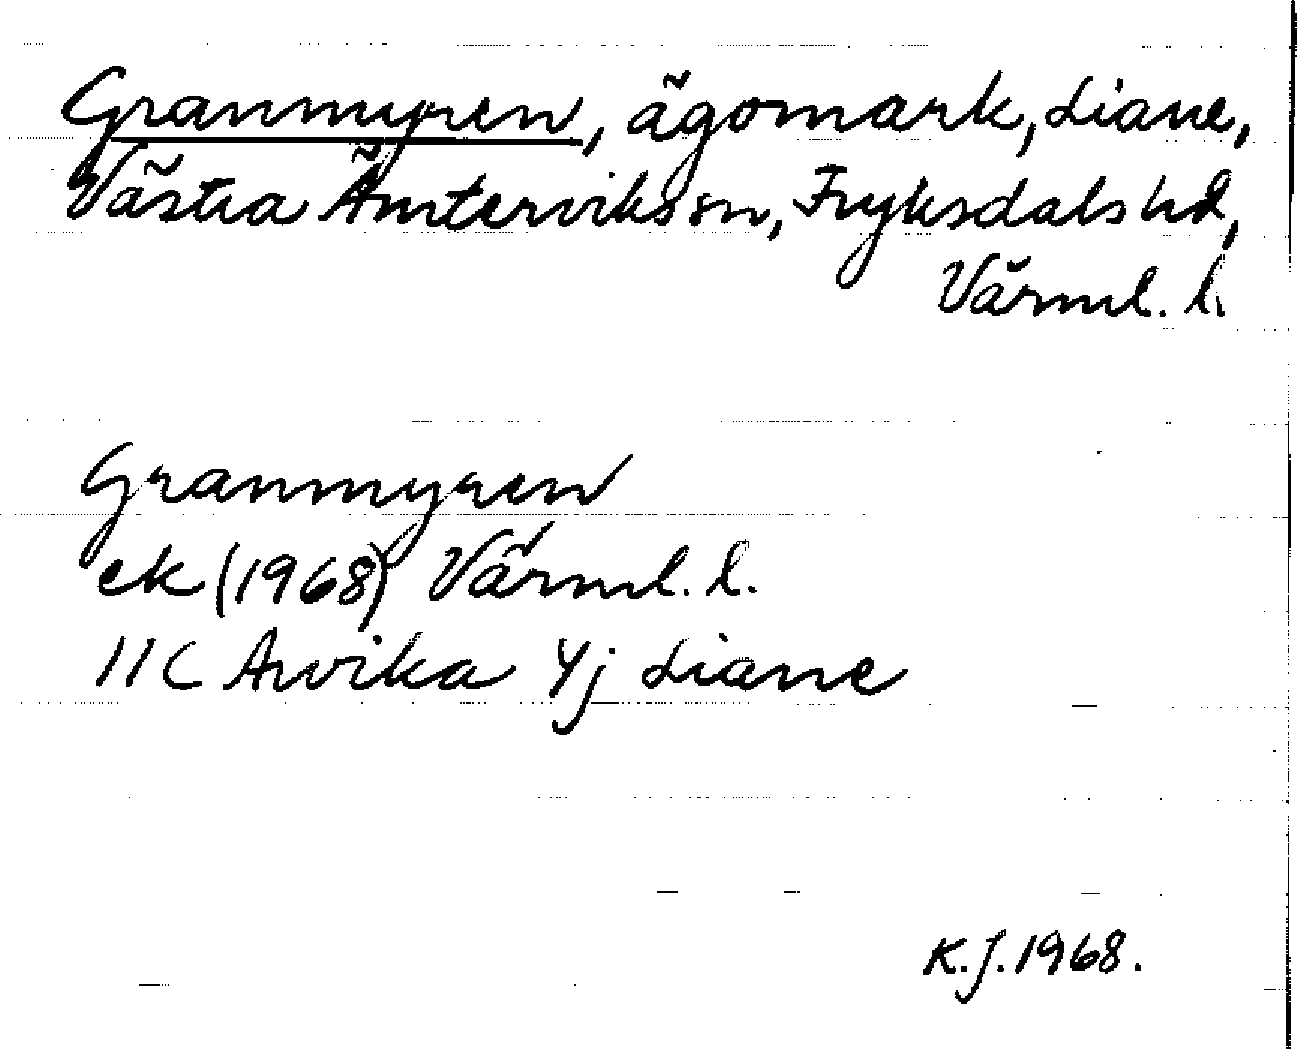 Granmyren, ägomark, Liane,
Västra Ämterviks sn, Fryksdals hd,
Värml. l.
Granmyren
ek (1968) Värml. l.
11C Arvika 4j Liane
K.J. 1968.